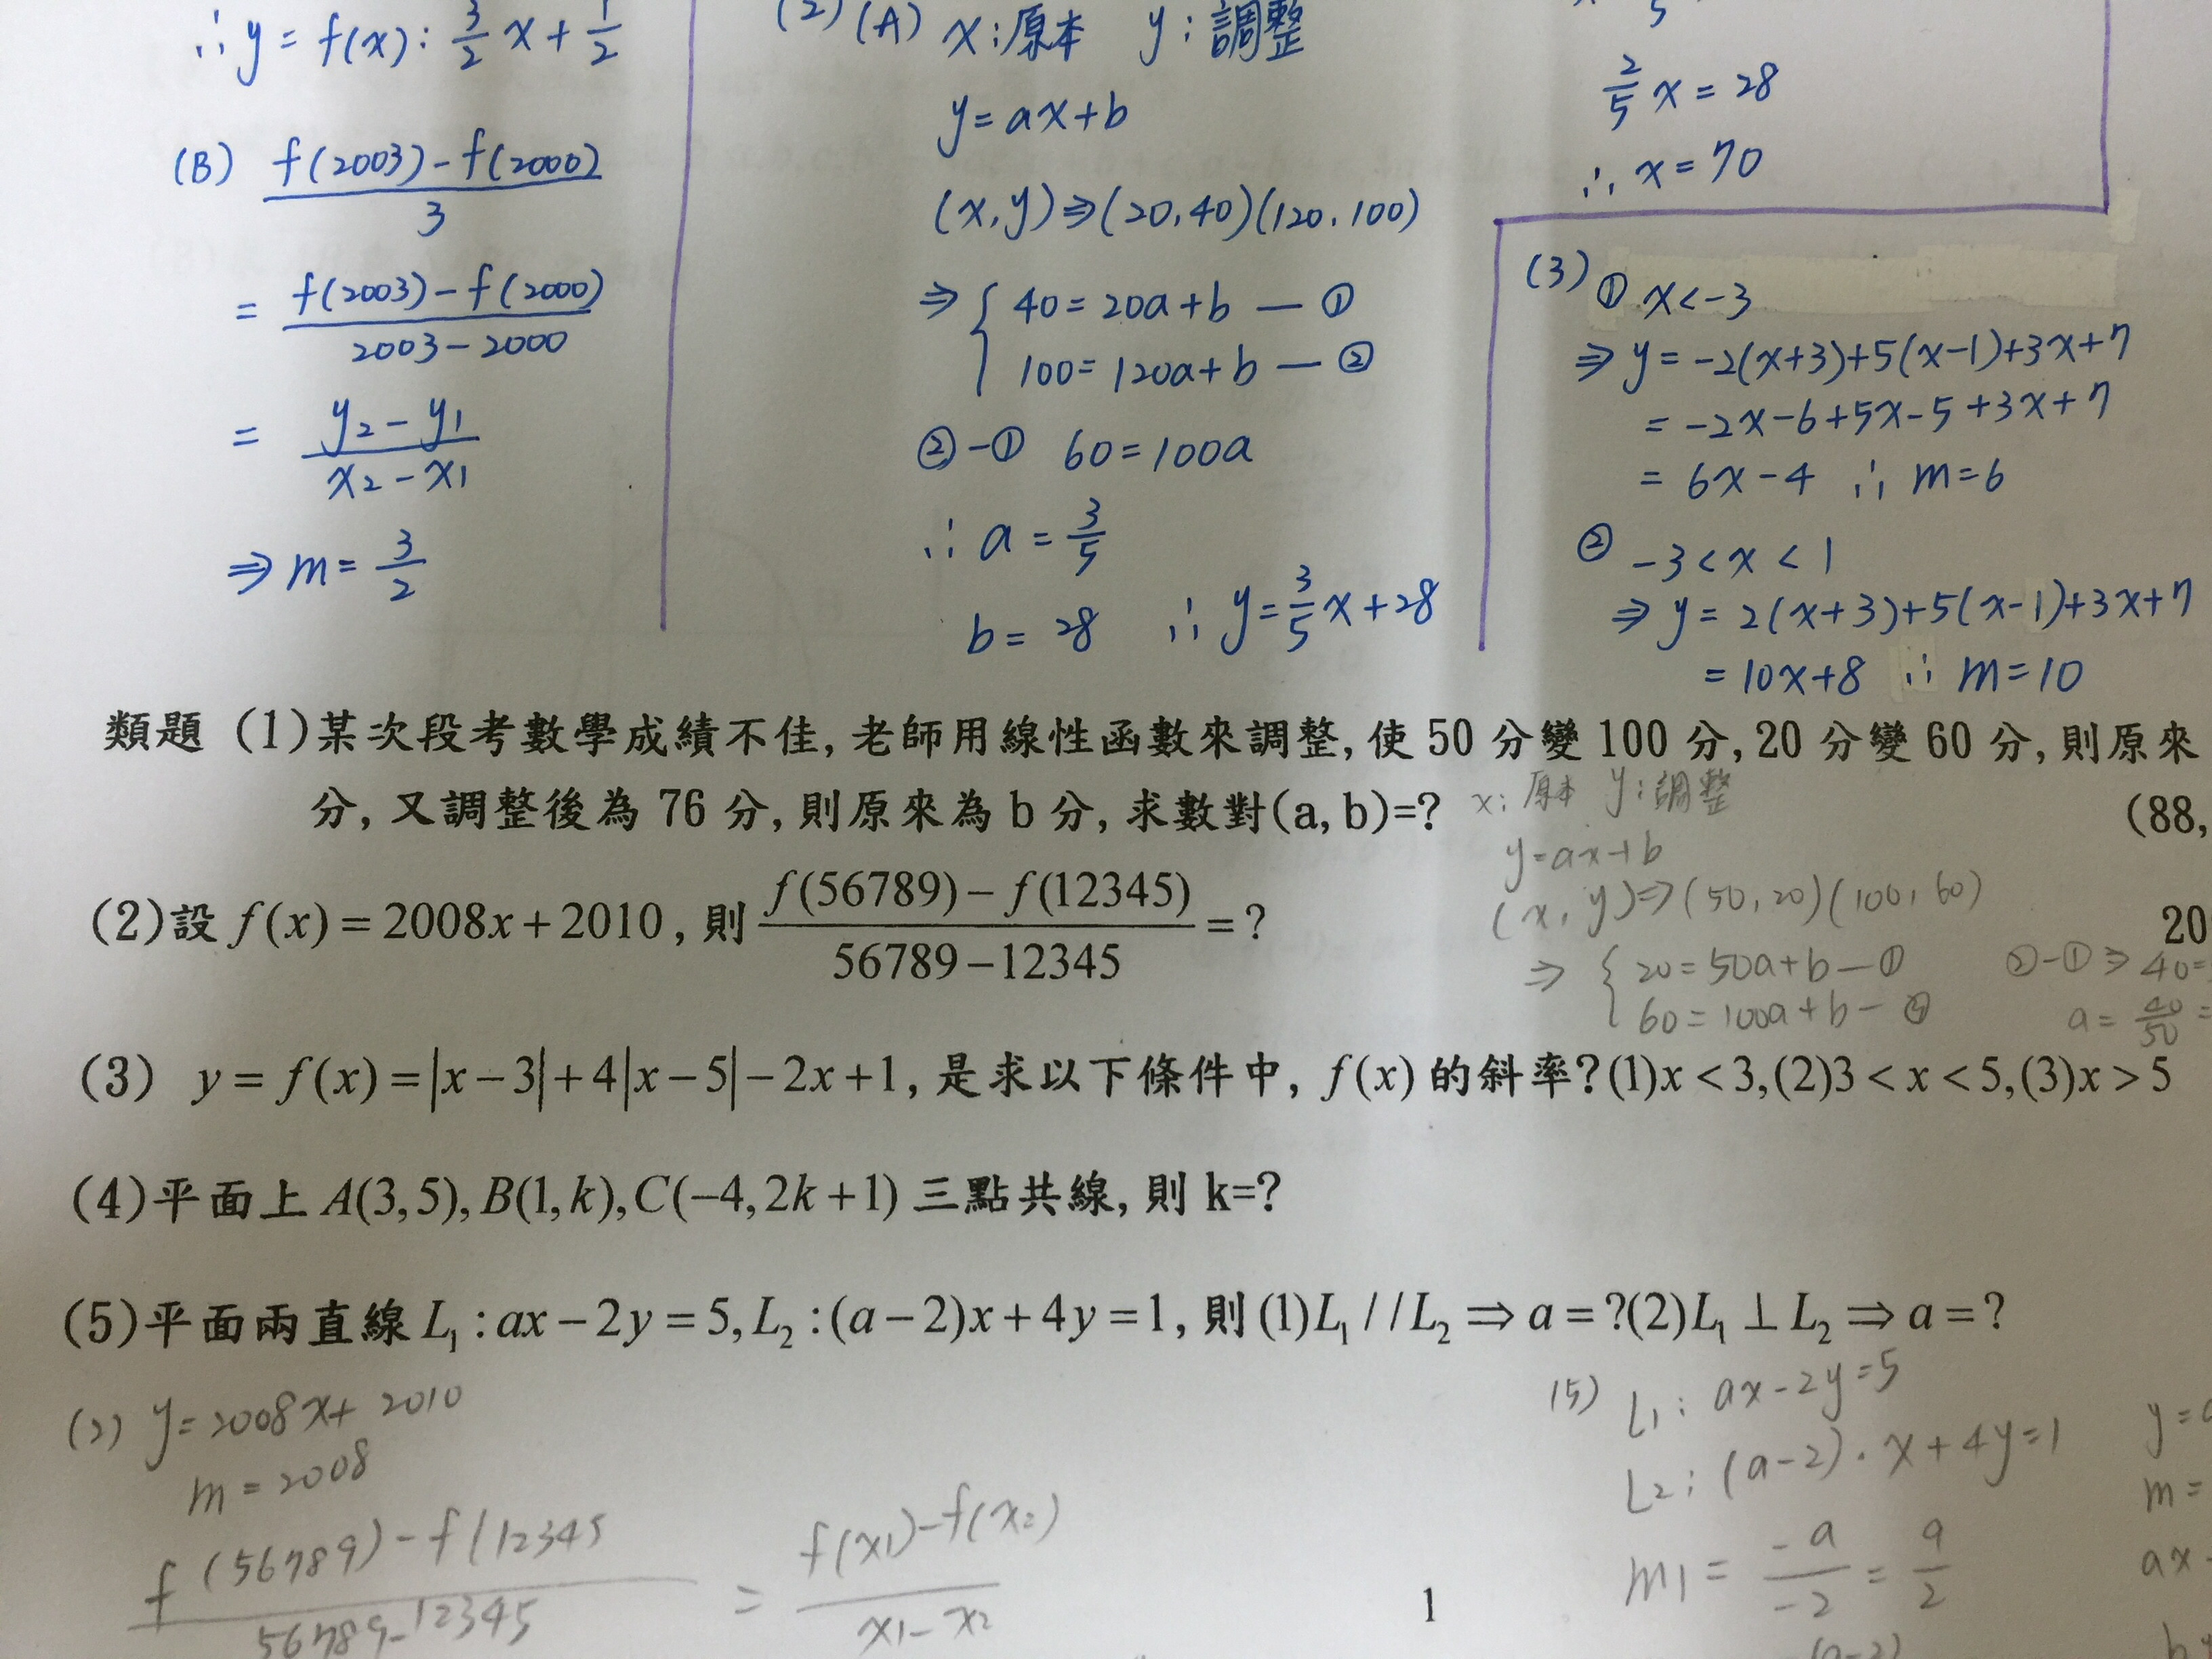 ∴ y = f(x) : 3/2 x + 1/2
(B) f(2003) - f(2000) / 3
= f(2003) - f(2000) / 2003 - 2000
= y₂ - y₁ / x₂ - x₁
⇒ m = 3/2
(2) (A) x : 原本 y : 調整
y = ax + b
(x, y) ⇒ (20, 40) (120, 100)
⇒ { 40 = 20a + b — ①
100 = 120a + b — ②
② - ① 60 = 100a
∴ a = 3/5
b = 28 ∴ y = 3/5 x + 28
5
2/5 x = 28
∴ x = 70
(3) ① x < -3
⇒ y = -2(x+3) + 5(x-1) + 3x + 7
= -2x - 6 + 5x - 5 + 3x + 7
= 6x - 4 ∴ m = 6
② -3 < x < 1
⇒ y = 2(x+3) + 5(x-1) + 3x + 7
= 10x + 8 ∴ m = 10
類題 (1)某次段考數學成績不佳, 老師用線性函數來調整, 使 50 分變 100 分, 20 分變 60 分, 則原來
分, 又調整後為 76 分, 則原來為 b 分, 求數對(a, b)=? (88,
x : 原本 y : 調整
y = ax + b
(x, y) ⇒ (50, 20) (100, 60)
⇒ { 20 = 50a + b — ①
60 = 100a + b — ②
② - ① ⇒ 40 =
a = 40/50 =
(2)設 f(x) = 2008x + 2010, 則 f(56789) - f(12345) / 56789 - 12345 = ? 20
(3) y = f(x) = |x - 3| + 4|x - 5| - 2x + 1, 是求以下條件中, f(x) 的斜率? (1)x < 3, (2)3 < x < 5, (3)x > 5
(4)平面上 A(3, 5), B(1, k), C(-4, 2k + 1) 三點共線, 則 k=?
(5)平面兩直線 L₁ : ax - 2y = 5, L₂ : (a - 2)x + 4y = 1, 則 (1)L₁ // L₂ ⇒ a = ? (2)L₁ ⊥ L₂ ⇒ a = ?
(2) y = 2008x + 2010
m = 2008
f(56789) - f(12345 / 56789 - 12345 = f(x₁) - f(x₂) / x₁ - x₂
(5) L₁ : ax - 2y = 5
L₂ : (a - 2) · x + 4y = 1
m₁ = -a / -2 = a/2
(a-2)
y =
m =
ax -
1